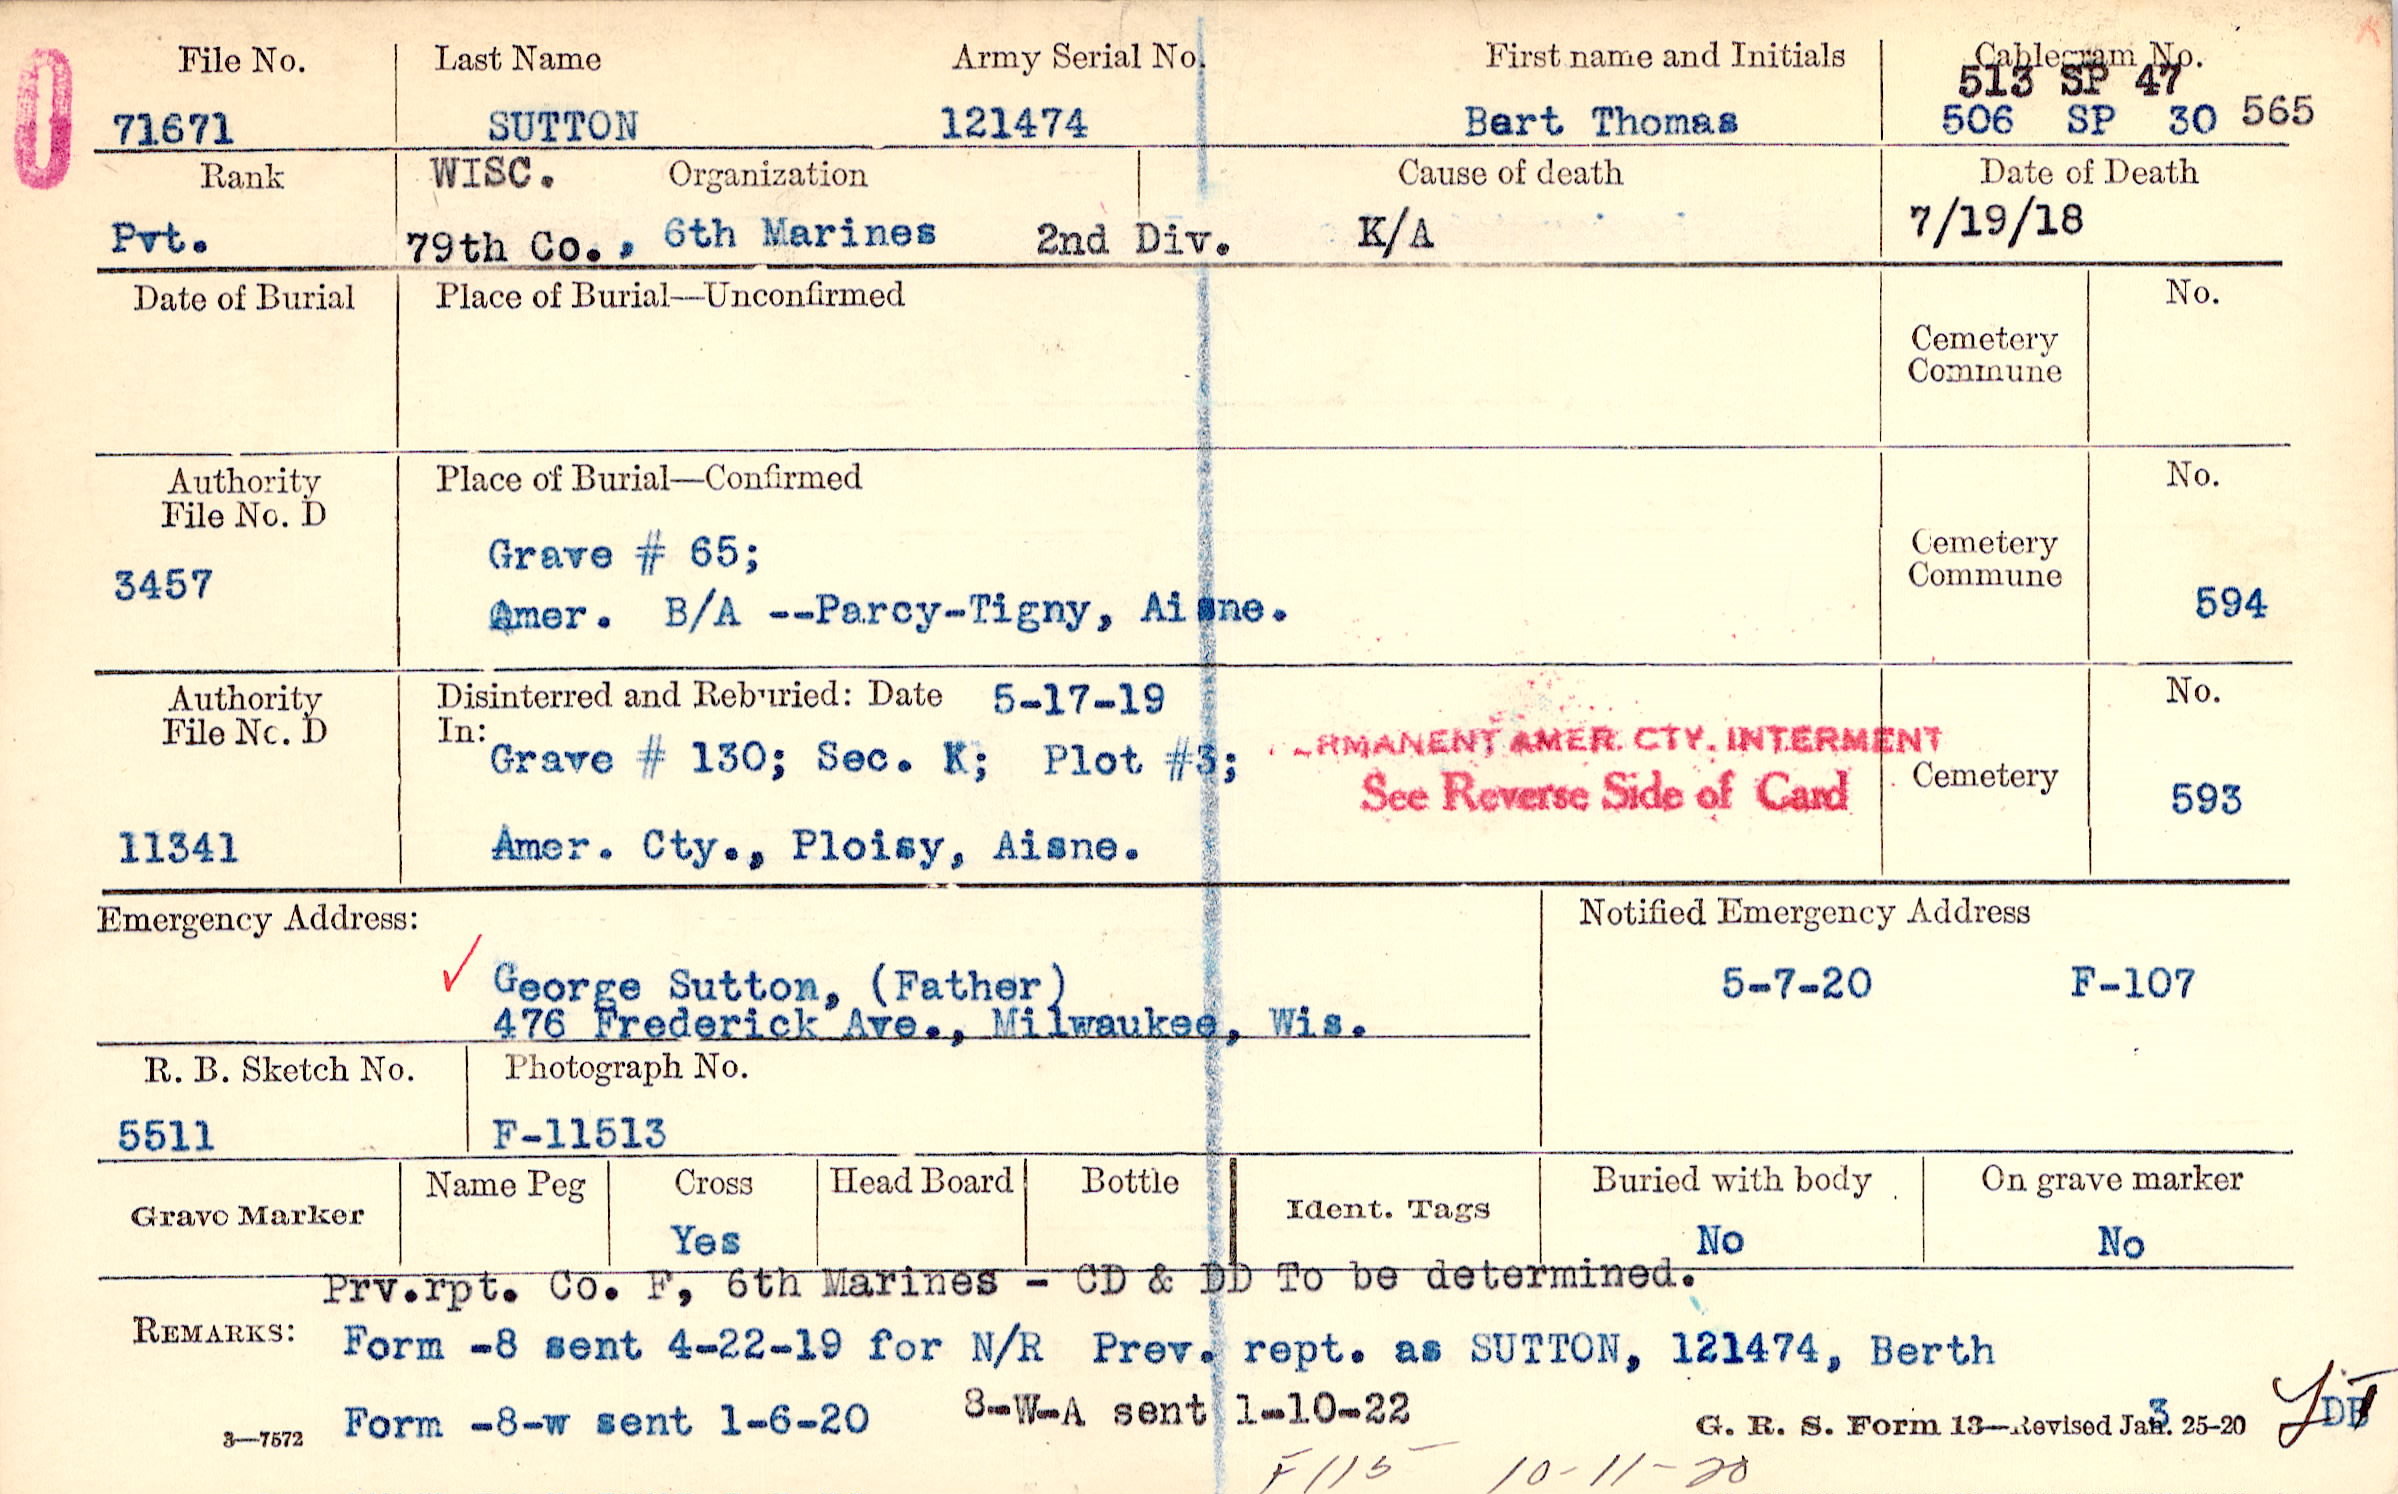 File No. Last Name Army Serial No. First name and Initials Cablegram No.
513 SP 47
71671 SUTTON 121474 Bert Thomas 506 SP 30 565
Rank WISC. Organization Cause of death Date of Death
Pvt. 79th Co., 6th Marines 2nd Div. K/A 7/19/18
Date of Burial Place of Burial—Unconfirmed No.
Cemetery
Commune
Authority Place of Burial—Confirmed No.
File No. D
Grave # 65; Cemetery
3457 Commune
Amer. B/A --Parcy-Tigny, Aisne. 594
Authority Disinterred and Reburied: Date 5-17-19 No.
File No. D In:
Grave # 130; Sec. K; Plot #3; ERMANENT AMER. CTY. INTERMENT
See Reverse Side of Card Cemetery 593
11341 Amer. Cty., Ploisy, Aisne.
Emergency Address: Notified Emergency Address
George Sutton, (Father) 5-7-20 F-107
476 Frederick Ave., Milwaukee, Wis.
R. B. Sketch No. Photograph No.
5511 F-11513
Grave Marker Name Peg Cross Head Board Bottle Ident. Tags Buried with body On grave marker
Yes No No
Prv.rpt. Co. F, 6th Marines - CD & DD To be determined.
REMARKS: Form -8 sent 4-22-19 for N/R Prev. rept. as SUTTON, 121474, Berth
Form -8-w sent 1-6-20 8-W-A sent 1-10-22
3—7572 G. R. S. Form 13—Revised Jan. 25-20
F115 10-11-20